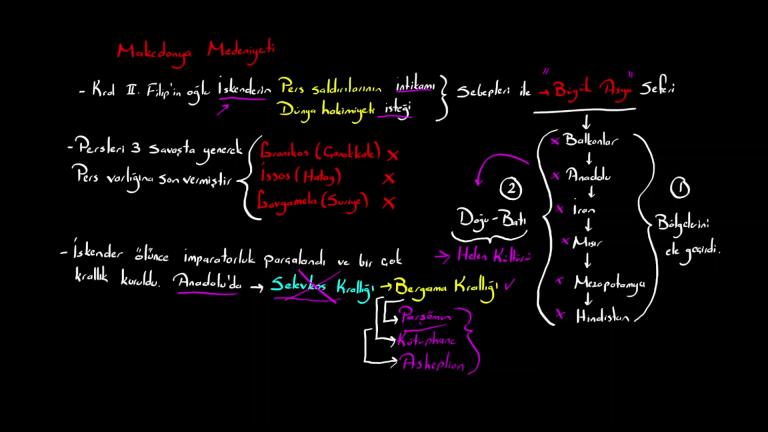 Makedonya Medeniyeti
- Kral II. Filip'in oğlu İskenderin Pers saldırılarının intikamı
Dünya hakimiyeti isteği
Sebepleri ile → "Büyük Asya" Seferi
- Persleri 3 Savaşta yenerek
Pers varlığına son vermiştir
Granikos (Çanakkale) x
İssos (Hatay) x
Gavgamela (Suriye) x
x Balkanlar
x Anadolu
x İran
x Mısır
x Mezopotamya
x Hindistan
1
Bölgelerini
ele geçirdi.
2
Doğu-Batı
→ Helen Kültürü
- İskender ölünce imparatorluk parçalandı ve bir çok
krallık kuruldu. Anadolu'da → Selevkos Krallığı → Bergama Krallığı ✓
Parşömen
Kütüphane
Asklepion